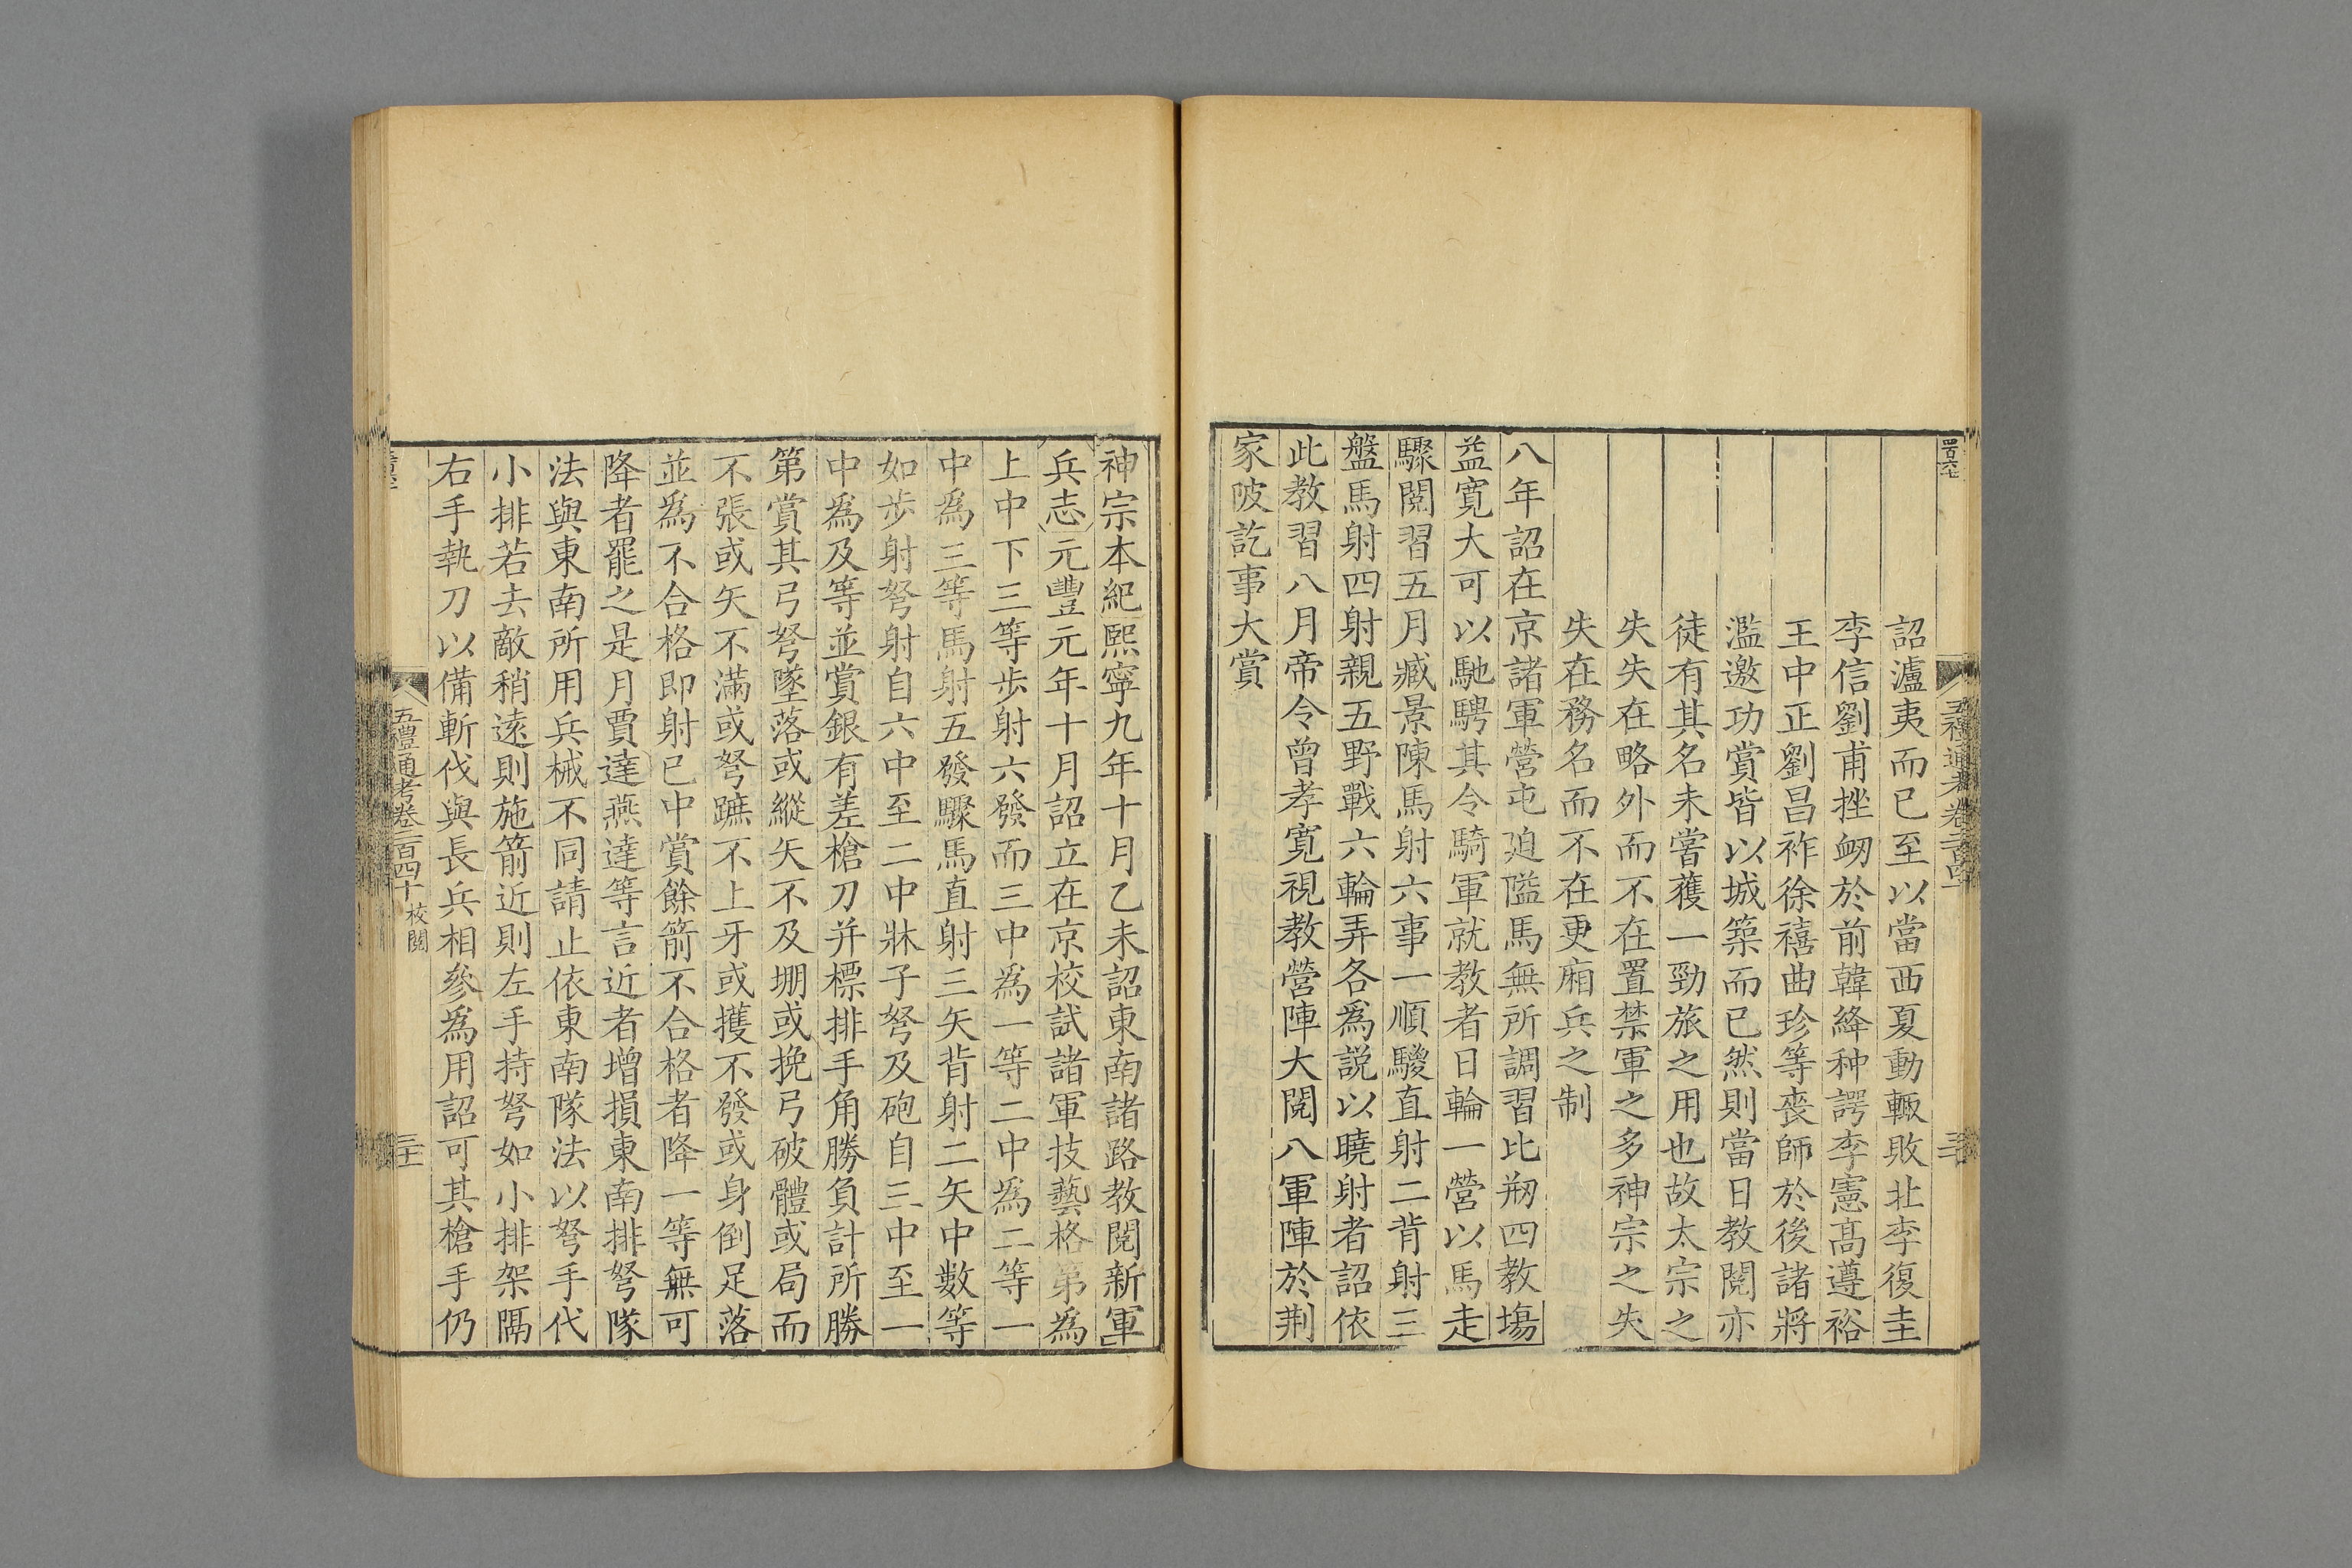 詔瀘夷而已至以當西夏動輙敗北李復圭
李信劉甫挫衂於前韓絳种諤李憲髙遵裕
王中正劉昌祚徐禧曲珍等喪師於後諸將
濫邀功賞皆以城築而已然則當日教閱亦
徒有其名未嘗獲一勁旅之用也故太宗之
失失在略外而不在置禁軍之多神宗之失
失在務名而不在更廂兵之制
八年詔在京諸軍營屯廹隘馬無所調習比刱四教塲
益寛大可以馳騁其令騎軍就教者日輪一營以馬走
驟閱習五月臧景陳馬射六事一順騣直射二背射三
盤馬射四射親五野戰六輪弄各爲説以曉射者詔依
此教習八月帝令曾孝寛視教營陣大閱八軍陣於荆
家陂訖事大賞
神宗本紀熙寧九年十月乙未詔東南諸路教閱新軍
兵志元豐元年十月詔立在京校試諸軍技藝格第爲
上中下三等歩射六發而三中為一等二中為二等一
中為三等馬射五發驟馬直射三矢背射二矢中數等
如歩射弩射自六中至二中牀子弩及砲自三中至一
中爲及等並賞銀有差槍刀并標排手角勝負計所勝
第賞其弓弩墜落或縱矢不及堋或挽弓破體或局而
不張或矢不滿或弩蹠不上牙或擭不發或身倒足落
並爲不合格即射已中賞餘箭不合格者降一等無可
降者罷之是月賈逵燕達等言近者增損東南排弩隊
法與東南所用兵械不同請止依東南隊法以弩手代
小排若去敵稍逺則施箭近則左手持弩如小排架隔
右手執刀以備斬伐與長兵相參爲用詔可其槍手仍
五禮通考卷二百四十 校閱